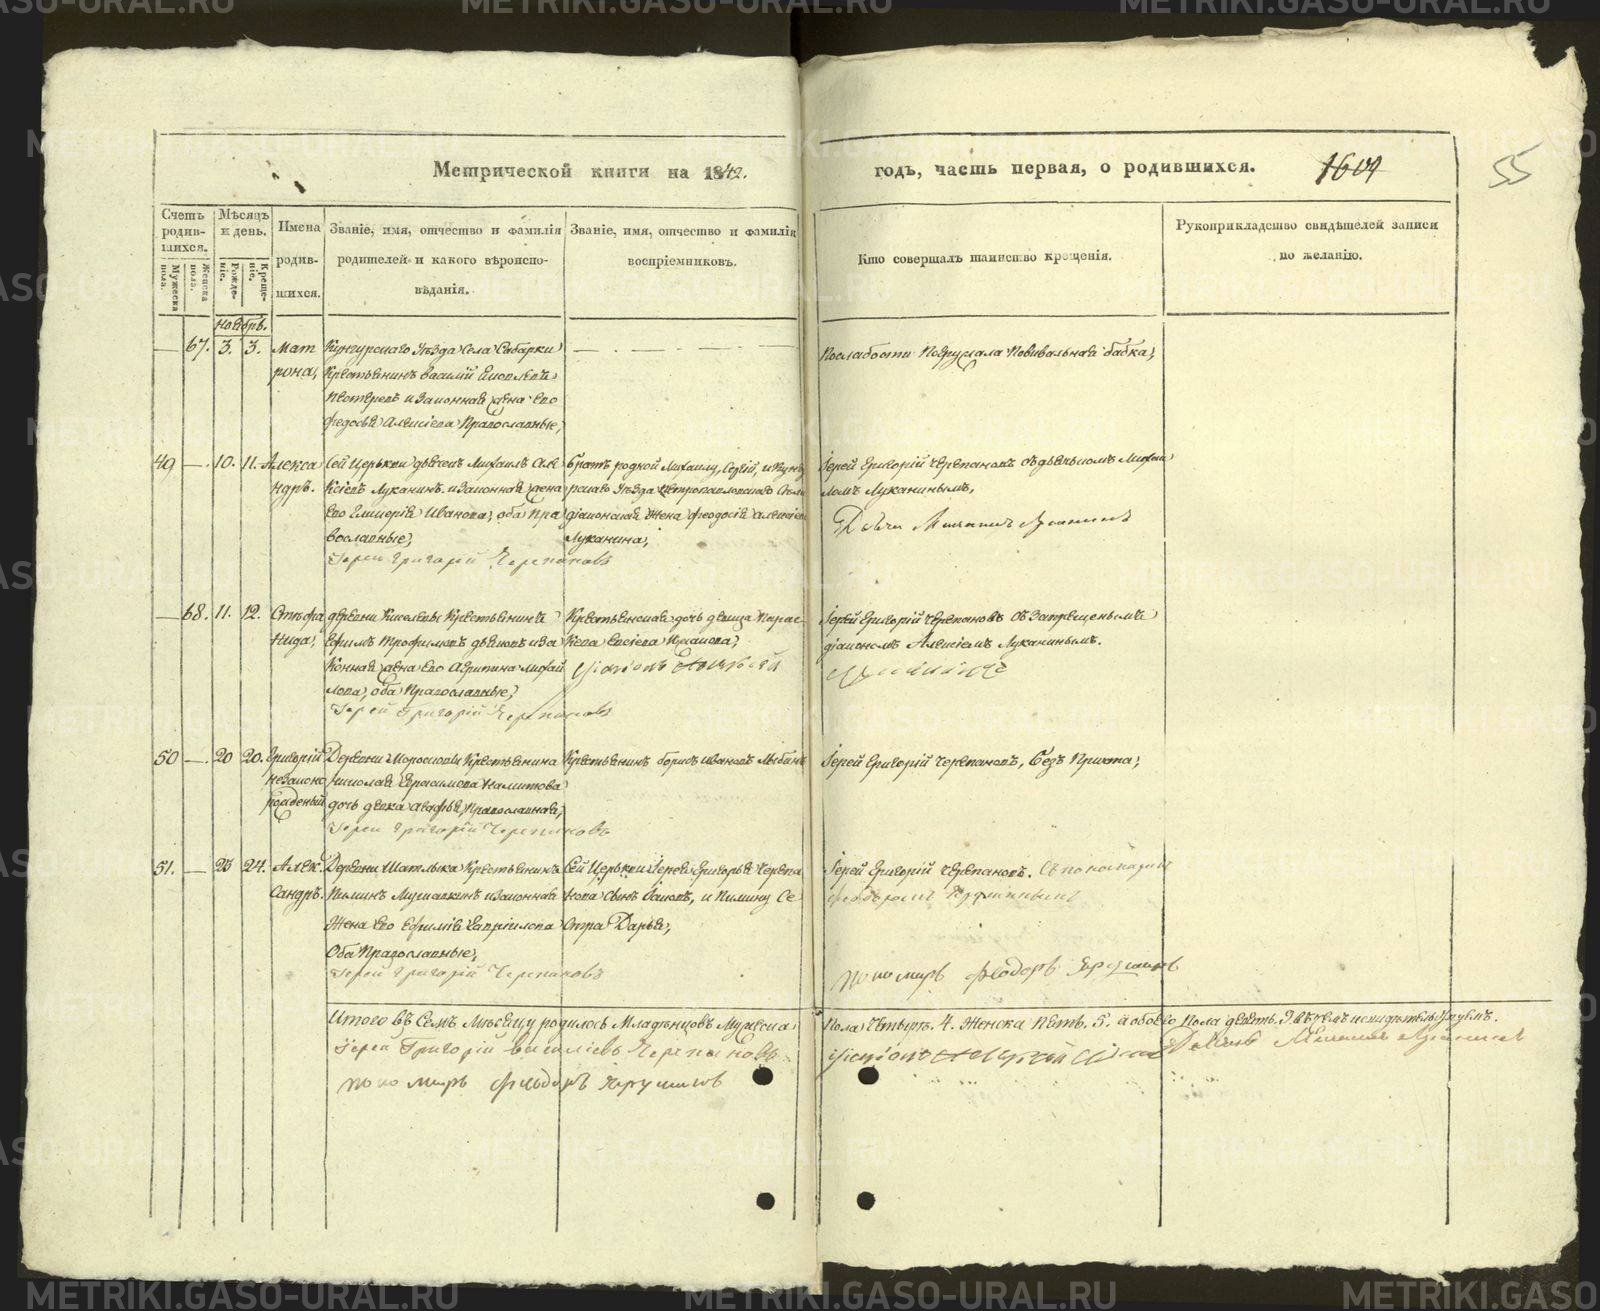 Метрической книги на 1842. годъ, часть первая, о родившихся.
1601
55
Счетъ родившихся.
Мужеска пола.
Женска пола.
Мѣсяцъ и день.
Рожденіе.
Крещеніе.
Имена родившихся.
Званіе, имя, отчество и фамилія родителей и какого вѣроисповѣданія.
Званіе, имя, отчество и фамилія воспріемниковъ.
Кто совершалъ таинство крещенія.
Рукоприкладство свидѣтелей записи по желанію.
Ноябрь.
— 67. 3. 3. Матрона,
Кунгурскаго Уѣзда Села Сабарки
Крестьянинъ Василій
и Законная жена его
Федосья Алексѣева Православные,
Послабости Погружала Повивальная бабка,
49 — 10. 11. Александръ.
Сей Церькви дьячекъ Михаилъ Але
ксѣевъ Луканинъ и Законная жена
его Гликерія Иванова, оба Пра
вославные,
Іерей Григорій Черепановъ
Братъ родной Михаилу, Сергій, и Кунгу
рскаго Уѣзда Петропавловскаго Села
діаконская жена Феодосія Алексѣева
Луканина,
Іерей Григорій Черепановъ съ дьячькомъ Михаи
ломъ Луканинымъ,
Дьячекъ Михаилъ Луканинъ
— 68. 11. 12. Стефанида,
деревни Киселевы Крестьянинъ
Ефимъ Трофимовъ и За
конная жена его Акрипина Михай
лова, оба Православные,
Іерей Григорій Черепановъ
Крестьянская дочь девица Парас
кева
Діаконъ Алексѣй
Іерей Григорій Черепановъ съ Запрещенымъ
діакономъ Алексѣемъ Луканинымъ.
Луканинъ
50 — 20 20. Григорій незаконорожденый
Деревни Морозковы Крестьянина
Николая Герасимова
дочь девка Агафья, Православная,
Іерей Григорій Черепановъ
Крестьянинъ Борисъ Ивановъ
Іерей Григорій Черепановъ, безъ Причта,
51. — 23 24. Александръ.
Деревни Шатлыка Крестьянинъ
Пиминъ и Законная
Жена его Ефимія Гавріилова
Оба Православные,
Іерей Григорій Черепановъ
Сей Церькви Іерея Григорья Черепа
нова Сынъ Іаковъ, и Пимину Се
стра Дарья,
Іерей Григорій Черепановъ. Съ пономаремъ
Феодоромъ
пономарь Феодоръ
Итого въ Семъ Мѣсяцу родилось Младѣнцовъ Мужеска
Пола Четыре. 4. Женска Пять. 5. а обоего Пола девять. 9.
Іерей Григорій Василіевъ Черепановъ
Діаконъ Алексѣй
Дьячекъ Михаилъ Луканинъ
пономарь Феодоръ
METRIKI.GASO-URAL.RU